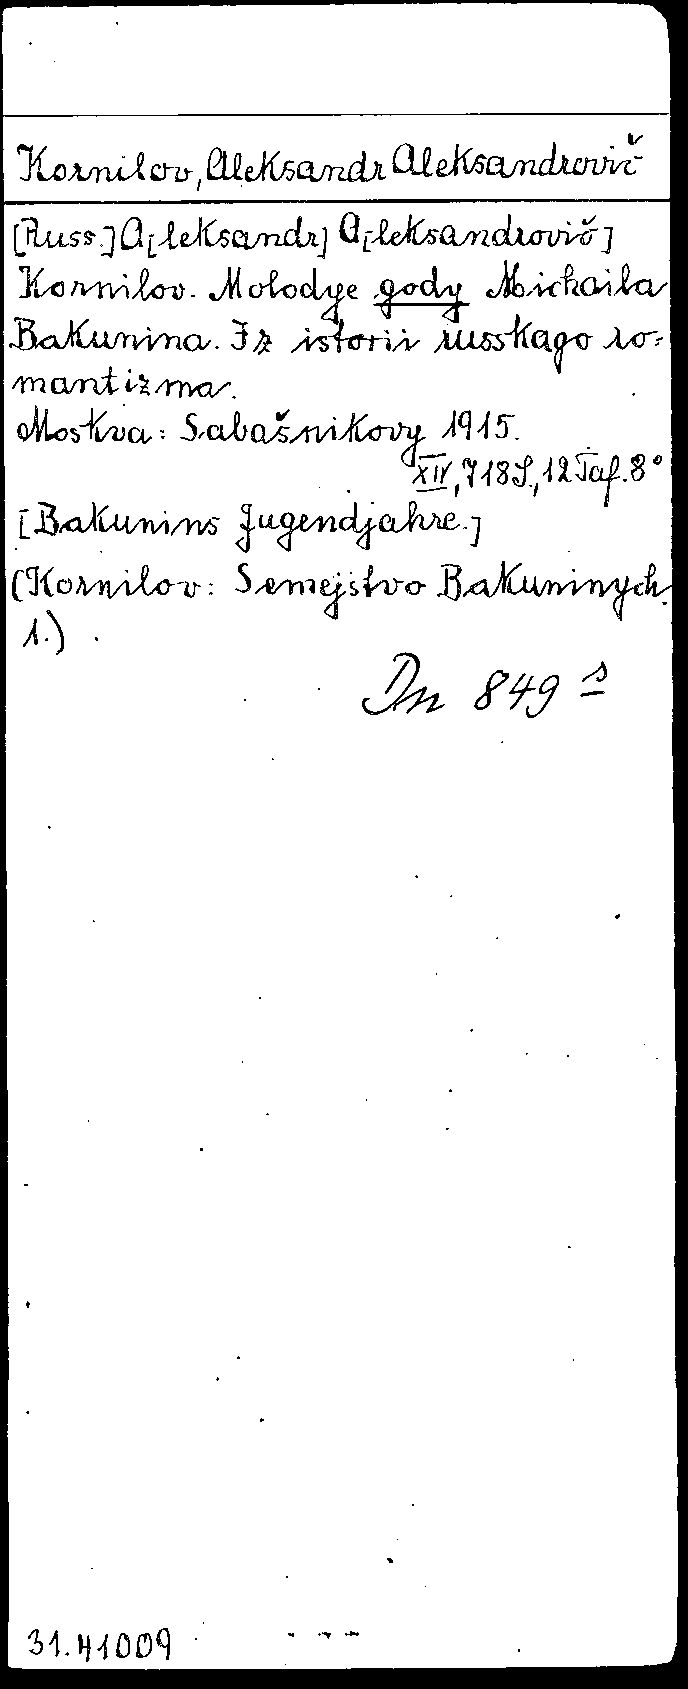 Kornilov, Aleksandr Aleksandrovič
[Russ.] A[leksandr] A[leksandrovič]
Kornilov. Molodye gody Michaila
Bakunina. Iz istorii russkago ro-
mantizma.
Moskva: Sabašnikovy 1915.
XIV, 718 S., 12 Taf. 8°
[Bakunins Jugendjahre.]
(Kornilov: Semejstvo Bakuninych.
1.)
Dn 849 s
31.41009